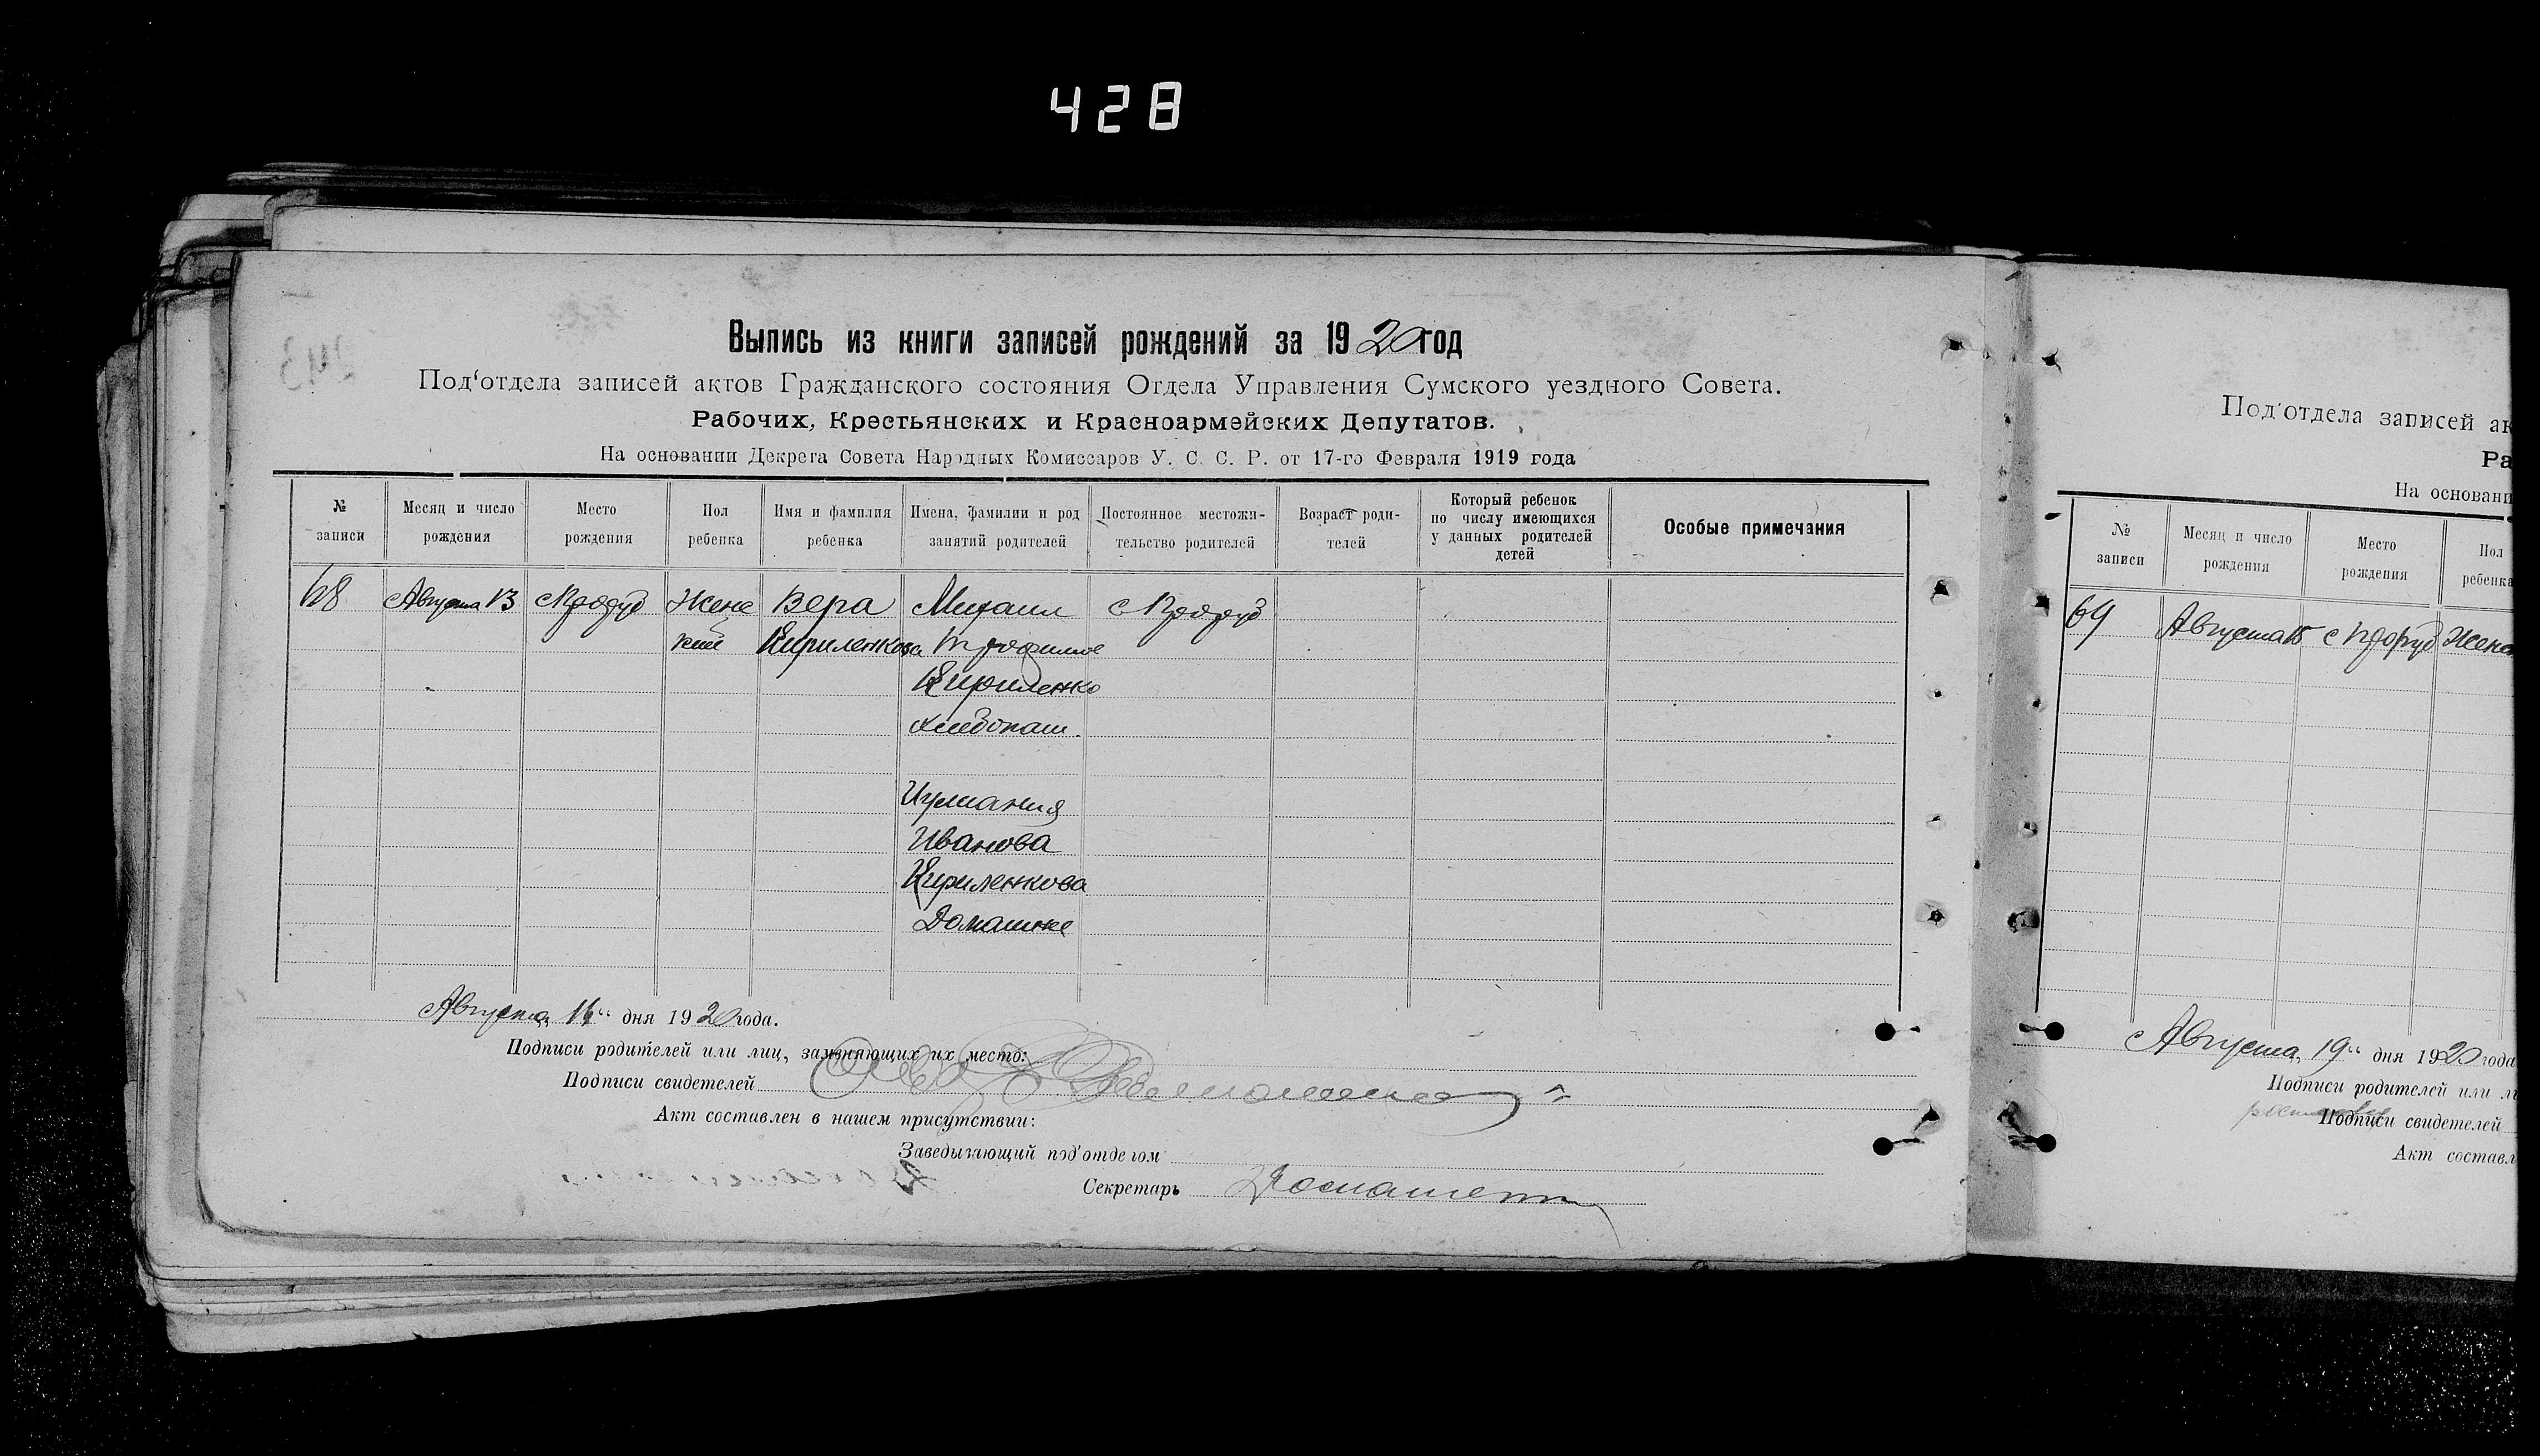 428
Выпись из книги записей рождений за 1920 год
Под‘отдела записей актов Гражданского состояния Отдела Управления Сумского уездного Совета.
Рабочих, Крестьянских и Красноармейских Депутатов.
На основании Декрета Совета Народных Комиссаров У. С. С. Р. от 17-го Февраля 1919 года
№ записи
Месяц и число рождения
Место рождения
Пол ребенка
Имя и фамилия ребенка
Имена, фамилии и род занятий родителей
Постоянное местожительство родителей
Возраст родителей
Который ребенок по числу имеющихся у данных родителей детей
Особые примечания
68
Августа 13
Женс
кий
Вера
Кириленкова
Михаил
Трофимов
Кириленко
хлебопаш.
Иванова
Кириленкова
Домашнее
Августа 16“ дня 1920 года.
Подписи родителей или лиц, заменяющих их место:
Подписи свидетелей
Акт составлен в нашем присутствии:
Заведывающий под‘отделом
Секретарь
243
Под‘отдела записей ак
Ра
На основани
№ записи
Месяц и число рождения
Место рождения
Пол ребенка
69
Августа 15
Женс
Августа 19“ дня 1920 года
Подписи родителей или л
Подписи свидетелей
Акт составл